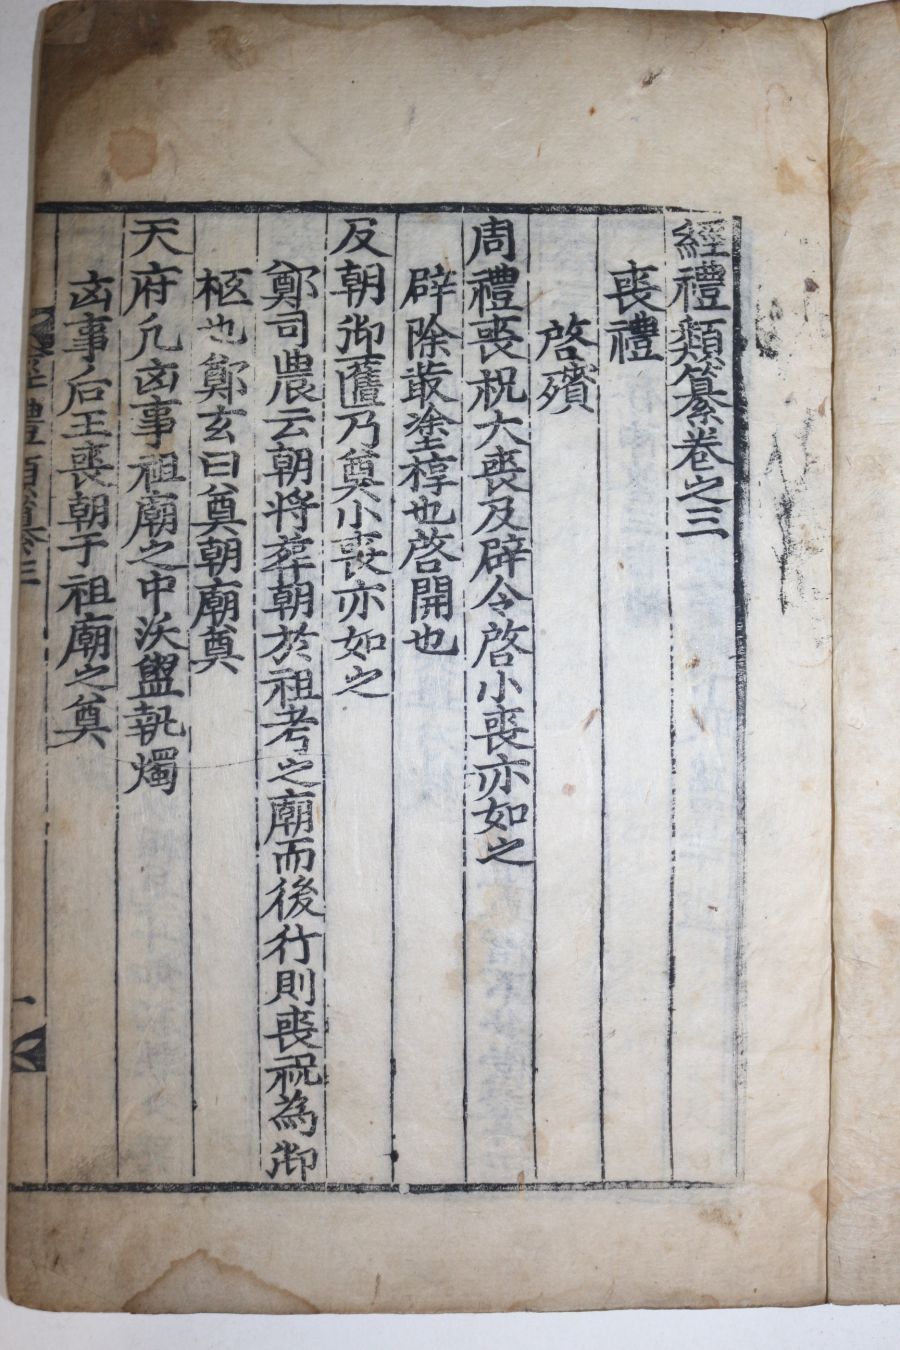 經禮類纂卷之三
喪禮
啓殯
周禮喪祝大喪及辟令啓小喪亦如之
辟除菆塗椁也啓開也
及朝御匶乃奠小喪亦如之
鄭司農云朝將葬朝於祖考之廟而後行則喪祝為御
柩也鄭玄曰奠朝廟奠
天府凡凶事祖廟之中沃盥執燭
凶事后王喪朝于祖廟之奠
經禮類纂卷三
一